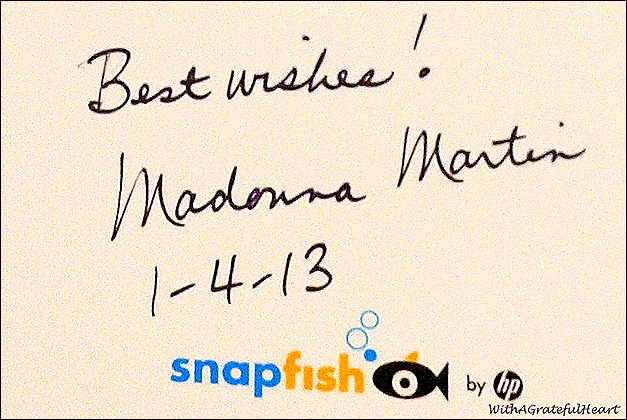 Best wishes!
Madonna Martin
1-4-13
snapfish
by hp
WithAGratefulHeart